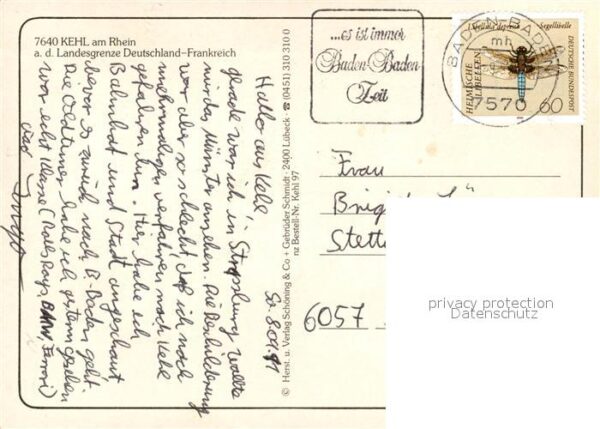 7640 KEHL am Rhein
a. d. Landesgrenze Deutschland–Frankreich
...es ist immer
Baden-Baden
Zeit
BADEN-BADEN
mh
7570
Libellula depressa Segellibelle
HEIMISCHE LIBELLEN
DEUTSCHE BUNDESPOST
60
Hallo aus Kehl!
So. 8.09.91
gerade war ich in Strasburg, wollte
nur das Münster ansehen. Die Beschilderung
war aber so schlecht, daß ich noch
mehrmaligen verfahren nach Kehl
gefahren bin. Hier habe ich
Bahnhof und Stadt angeschaut
bevor es zurück nach B-Baden geht.
Die Oldtimer habe ich gestern gesehen
war echt Klasse (Rolls Roys, BMW, Ferrari)
© Herst. u. Verlag Schöning & Co + Gebrüder Schmidt · 2400 Lübeck · ☎ (0451) 310 310 0
nz Bestell-Nr. Kehl 97
Frau
Stett
6057
privacy protection
Datenschutz